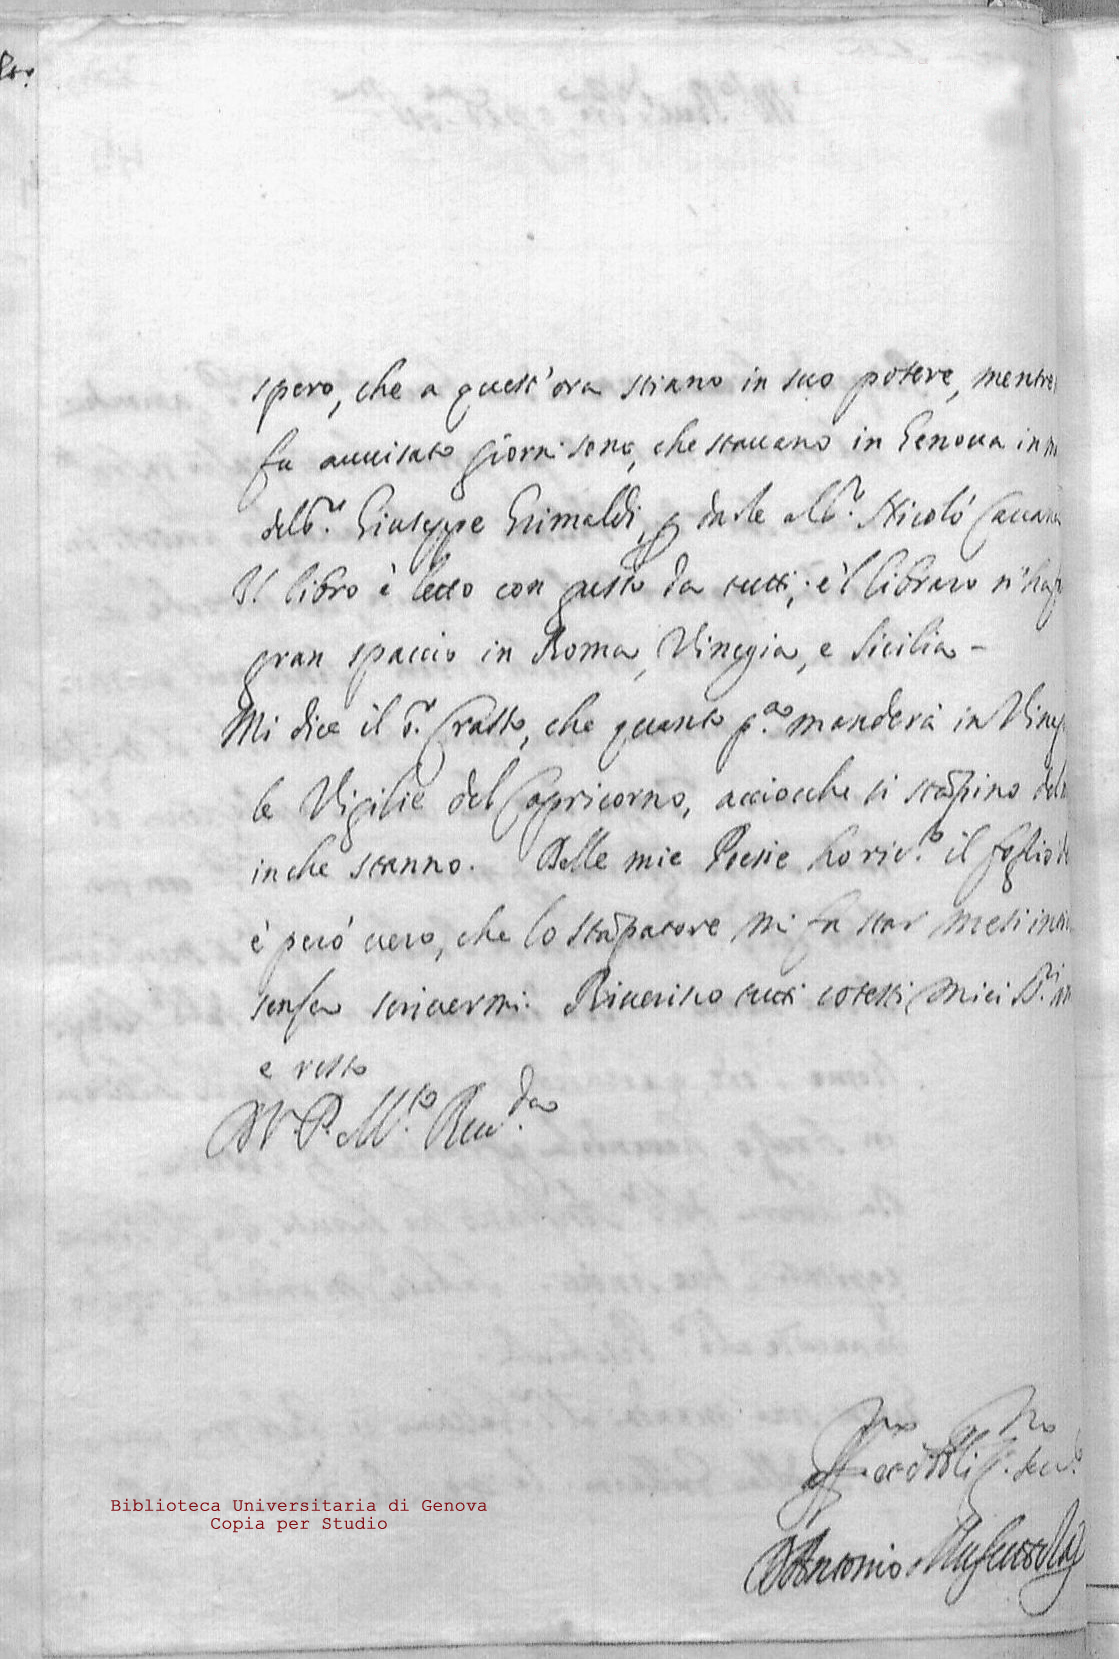 spero, che a quest'ora stiano in suo potere, mentre
fu auuisato giorni sono, che stauano in Genoua in
del S.r Giuseppe Grimaldi, p darle al S.r Nicolò
Il libro è letto con gusto da tutti, e'l libraro n'ha
gran spaccio in Roma, Vinegia, e Sicilia -
Mi dice il S.r Crasso, che quanto p.a manderà in
le Vigilie del Capricorno, acciocche si stãpino
in che stanno. Delle mie Poesie ho ric.to il foglio
è però uero, che lo stãpatore mi fa star mesi
senza scriuermi. Riuerisco tutti cotesti miei S.ri
e resto
D V. P. M.to Reu.da
Diuotiss.mo
D Antonio Muscettola
Biblioteca Universitaria di Genova
Copia per Studio